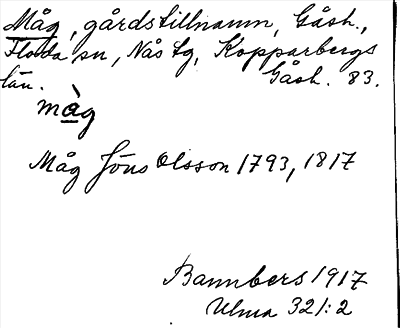 Måg, gårdstillnamn, Gåsh.,
Floda sn, Nås tg, Kopparbergs
län. Gåsh. 83.
måg
Måg Jöns Olsson 1793, 1817
Bannbers 1917
Ulma 321:2